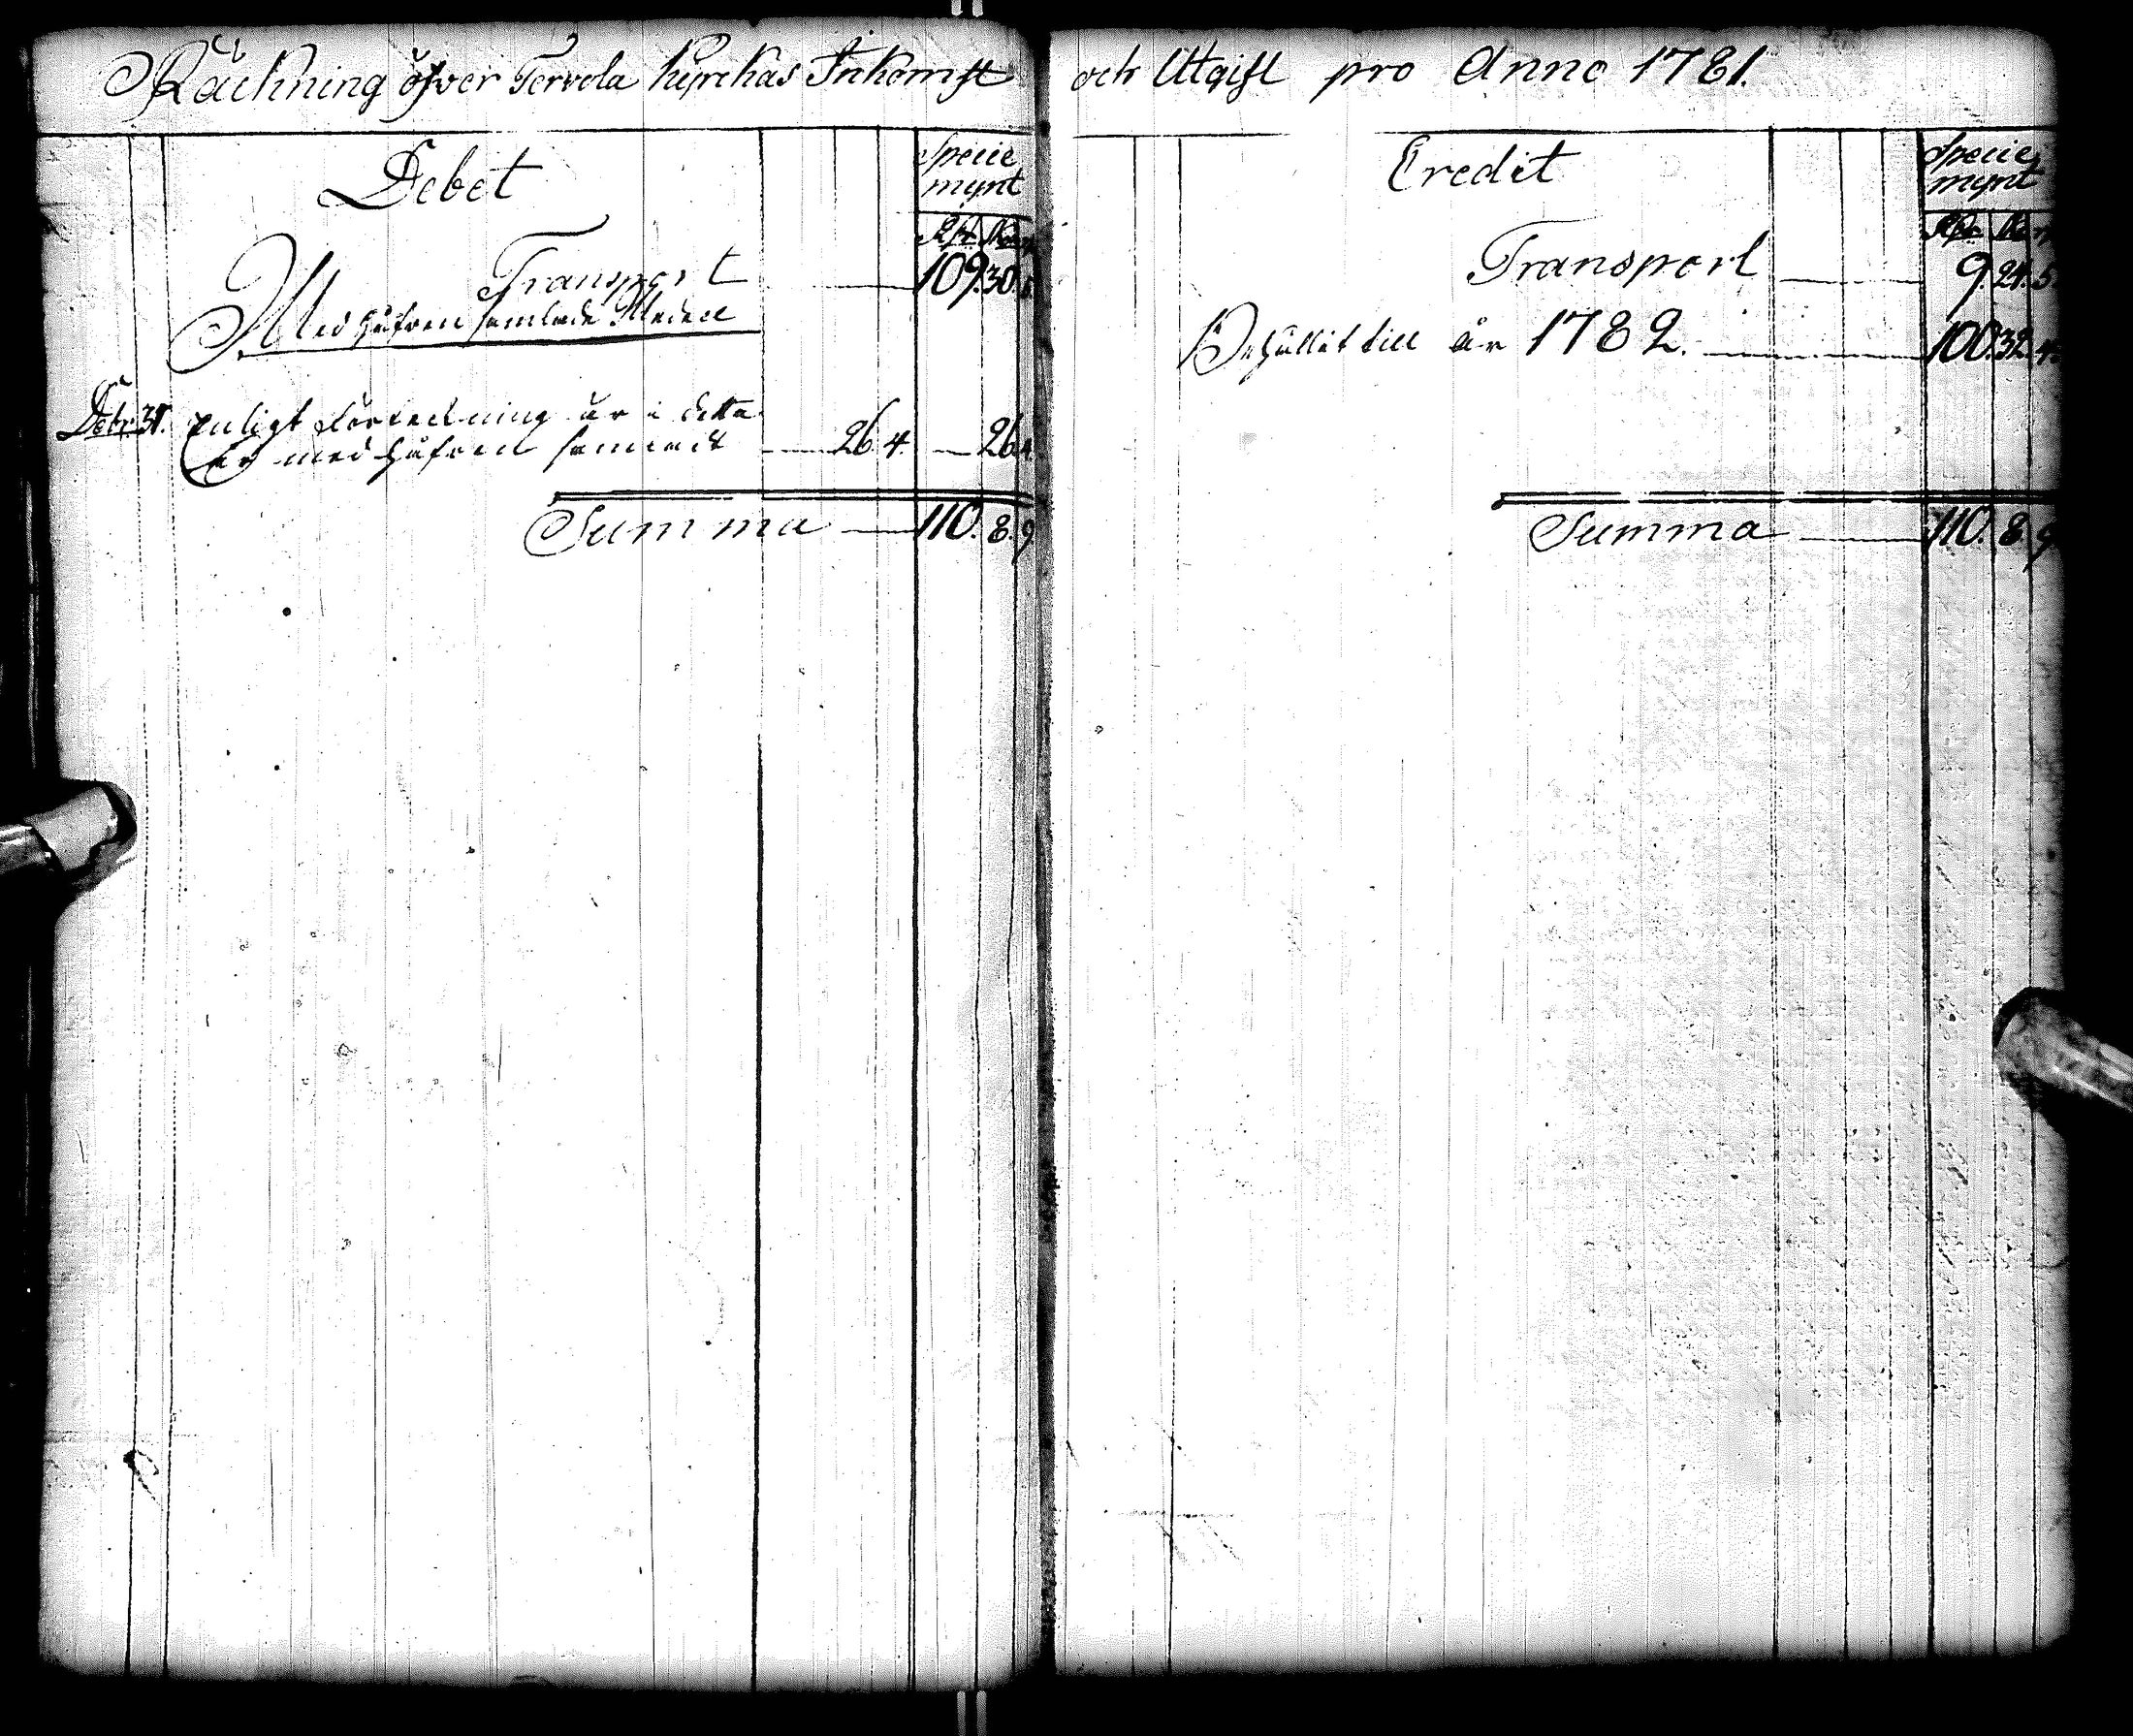 Räckning öfver Tervola kyrckas Inkomst och Utgift pro Anno 1781.
Debet
Specie mynt
Rdr
Transport 109. 30. 5.
Med håfven samlade Meden
Debr 31. Enligt förteckning är i detta
år med håfven samladt 26. 4. 26. 4.
Summa 110. 8. 9
Credit
Specie mynt
Rdr
Transport 9. 24. 5.
Behållit till år 1782. 100. 32. 4.
Summa 110. 8. 9